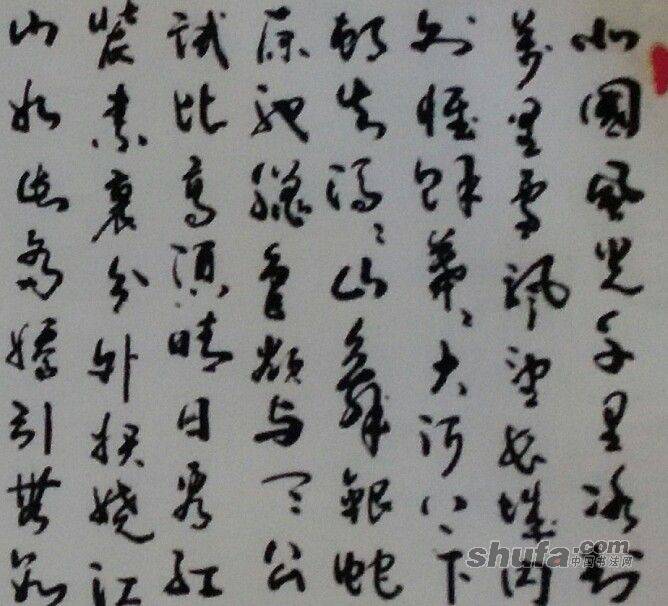 北國風光千里冰封
萬里雪飘望长城内
外惟餘莽〻大河上下
頓失滔〻山舞銀蛇
原驰蠟象欲与天公
试比高須晴日看红
裝素裹分外妖娆江
山如此多嬌引無数
shufa.com
中国书法网